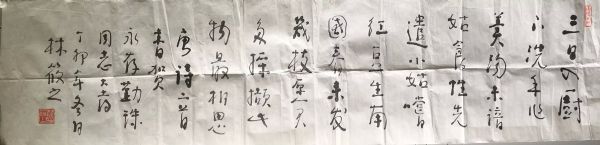 三日入廚
下洗手作
羹湯未諳
姑食性先
遣小姑嘗
红豆生南
國春来發
幾枝愿君
多採擷此
物最相思
唐诗二首
書贺
永存勤珠
同志大喜
丁卯年冬日
林筱之